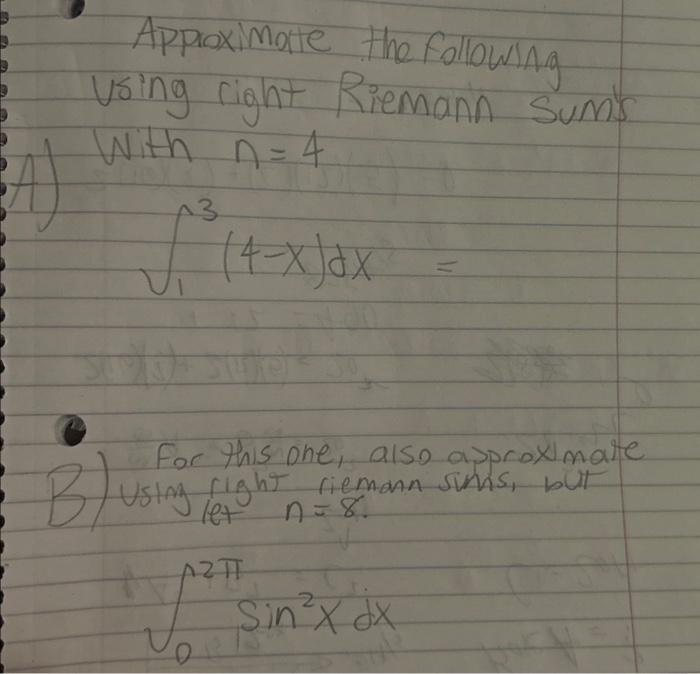 Approximate the following
using right Riemann sums
with n = 4
A)
∫₁³ (4-x)dx =
B) For this one, also approximate
using right riemann sums, but
let n = 8.
∫₀^2π sin²x dx